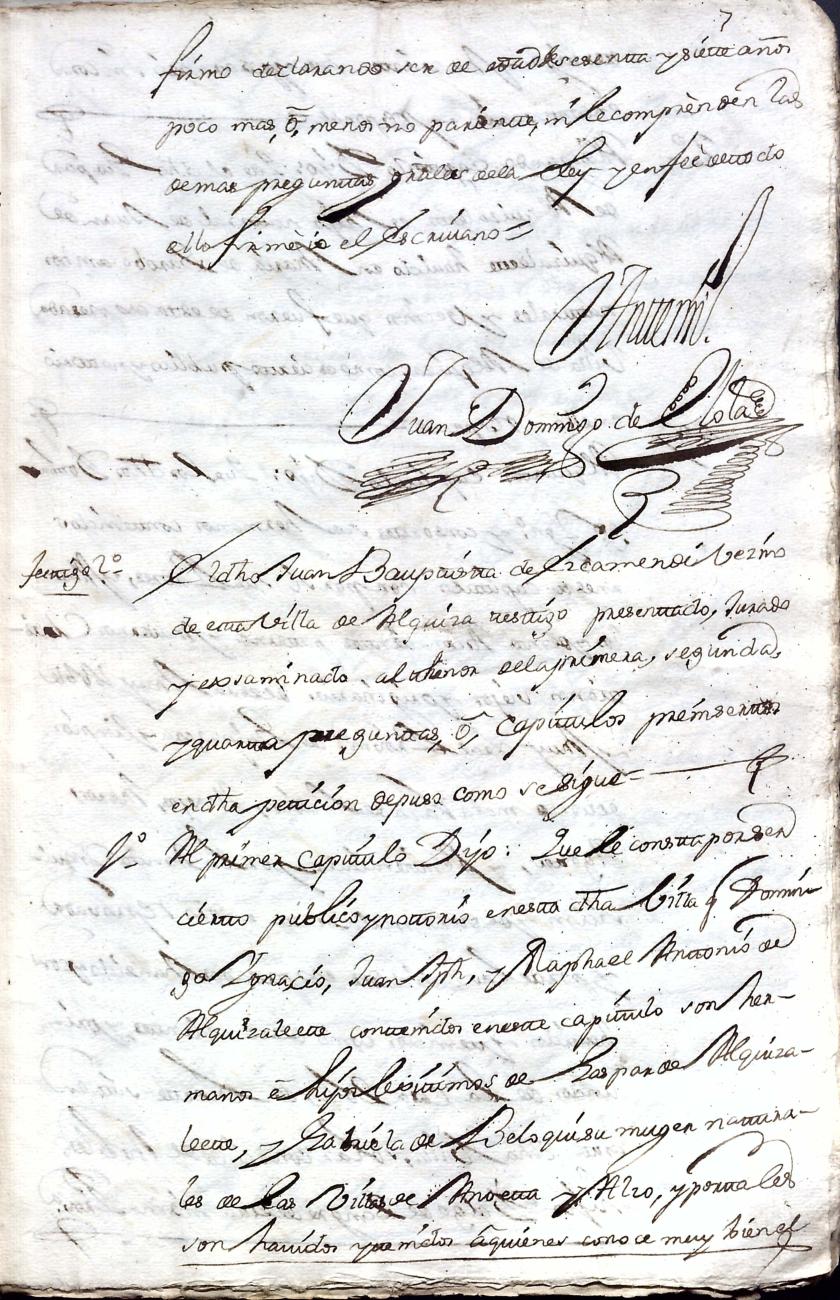 7
firmo declarando ser de edad de sesentta y siette años
poco mas, ō, menos no parientte, ni le comprènden las
demas pregunttas grāles de la Ley y en feè de todo
ello firmè io el Escrivano=
Anttemi.
Juan Domingo de Olola
testigo 2º
El dho Juan Bauptistta de Ercamendi Vezino
de estta Villa de Alquiza testtigo presenttado, Jurado
y exsaminado al thenor de la primera, segunda,
y quartta preguntas, ō, Capitulos preinserttos
en dha peticion depuso como se sigue=
1º Al primer Capitulo Dijo: Que le constta por ser
ciertto publico y nottorio en estta dha Villa q̃ Domin-
go Ygnacio, Juan Jph, y Raphael Anttonio de
Alquizaleette conttenidos en estte capitulo son her-
manos è hijos lexitimos de Gaspar de Alquiza-
leette, y Gabriela de Beloqui su muger nattura-
les de las Villas de Anoetta y Alzo, y por tales
son havidos y tenidos â quienes conoce muy bien el